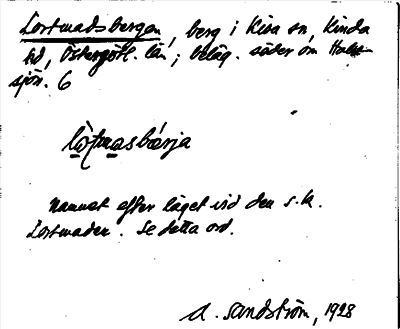 Lortmadsbergen, berg i Kisa sn, Kinda
hd, Östergötl. län; beläg. söder om
sjön. 6
lòrtmasbærja
Namnet efter läget vid den s.k.
Lortmaden. Se detta ord.
A. Sandström, 1928